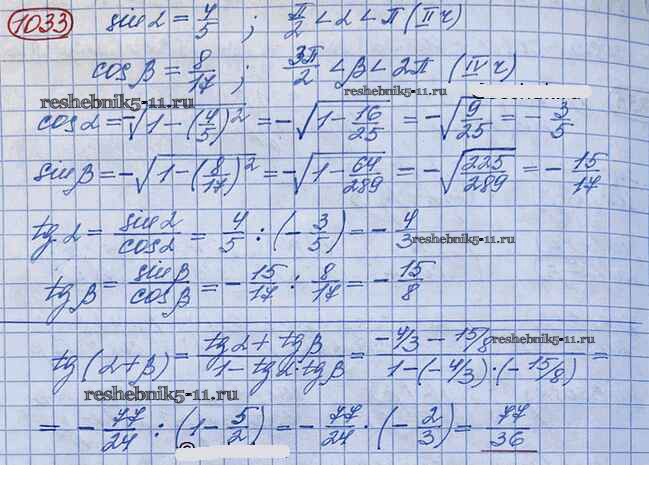 1033 sin α = 4/5 ; π/2 < α < π (II ч)
cos β = 8/17 ; 3π/2 < β < 2π (IV ч)
reshebnik5-11.ru reshebnik5-11.ru
cos α = -√(1-(4/5)²) = -√(1-16/25) = -√(9/25) = -3/5
sin β = -√(1-(8/17)²) = -√(1-64/289) = -√(225/289) = -15/17
tg α = sin α/cos α = 4/5 : (-3/5) = -4/3
reshebnik5-11.ru
tg β = sin β/cos β = -15/17 : 8/17 = -15/8
tg(α+β) = (tg α + tg β)/(1 - tg α · tg β) = (-4/3 - 15/8)/(1-(-4/3)·(-15/8)) =
reshebnik5-11.ru
reshebnik5-11.ru
= -77/24 : (1 - 5/2) = -77/24 · (-2/3) = 77/36